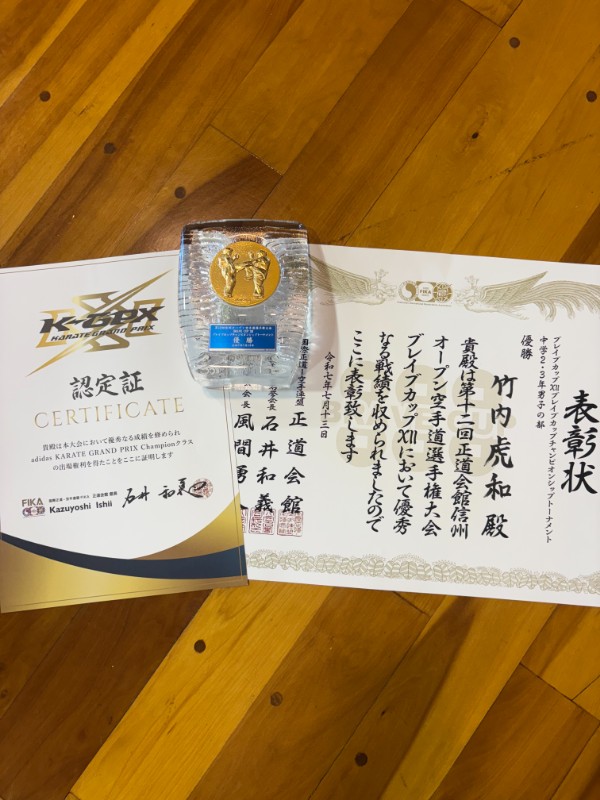 K-GPX
KARATE GRAND PRIX
認定証
CERTIFICATE
貴殿は本大会において優秀なる成績を修められ
adidas KARATE GRAND PRIX Championクラス
の出場権利を得たことをここに証明します
FIKA
正道会館 館長
Kazuyoshi Ishii
石井 和義
優勝
FIKA
表彰状
ブレイブカップⅫブレイブカップチャンピオンシップトーナメント
中学2・3年男子の部
優勝
竹内虎和 殿
貴殿は第十二回正道会館信州
オープン空手道選手権大会
ブレイブカップⅫにおいて優秀
なる戦績を収められましたので
ここに表彰致します
令和七年七月十三日
正道会館
石井和義
会長 風間勇